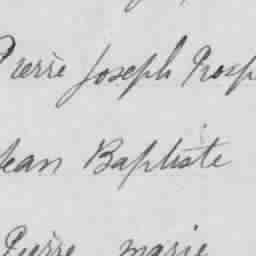 Pierre Joseph Prosp
Jean Baptiste
Pierre marie